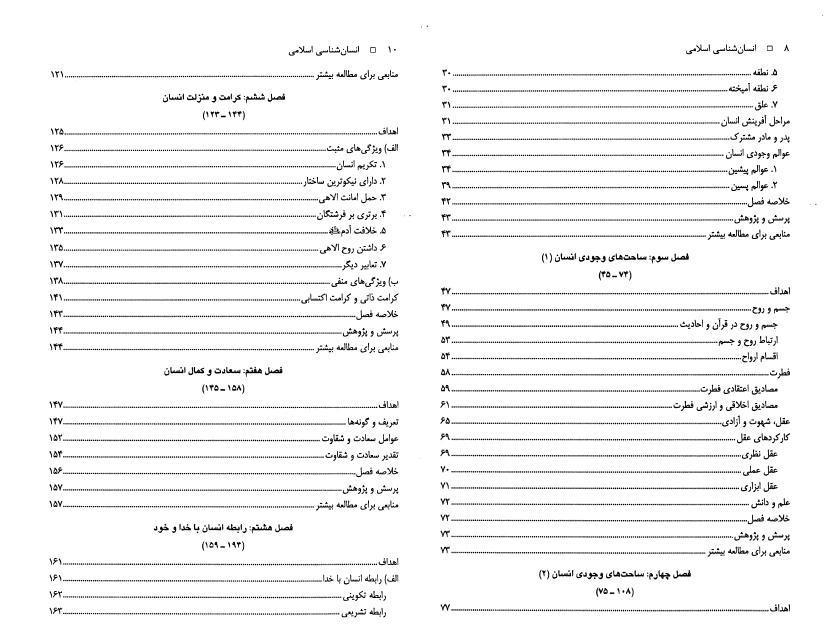 ۸ □ انسان‌شناسی اسلامی
۵. نطفه ........ ۳۰
۶. نطفه آمیخته ........ ۳۰
۷. علق ........ ۳۱
مراحل آفرینش انسان ........ ۳۱
پدر و مادر مشترک ........ ۳۳
عوالم وجودی انسان ........ ۳۴
۱. عوالم پیشین ........ ۳۴
۲. عوالم پسین ........ ۳۹
خلاصه فصل ........ ۴۲
پرسش و پژوهش ........ ۴۳
منابعی برای مطالعه بیشتر ........ ۴۳
فصل سوم: ساحت‌های وجودی انسان (۱)
(۷۴ ـ ۴۵)
اهداف ........ ۴۷
جسم و روح ........ ۴۷
جسم و روح در قرآن و احادیث ........ ۴۹
ارتباط روح و جسم ........ ۵۳
اقسام ارواح ........ ۵۴
فطرت ........ ۵۸
مصادیق اعتقادی فطرت ........ ۵۹
مصادیق اخلاقی و ارزشی فطرت ........ ۶۱
عقل، شهوت و آزادی ........ ۶۵
کارکردهای عقل ........ ۶۹
عقل نظری ........ ۶۹
عقل عملی ........ ۷۰
عقل ابزاری ........ ۷۱
علم و دانش ........ ۷۲
خلاصه فصل ........ ۷۲
پرسش و پژوهش ........ ۷۳
منابعی برای مطالعه بیشتر ........ ۷۳
فصل چهارم: ساحت‌های وجودی انسان (۲)
(۱۰۸ ـ ۷۵)
اهداف ........ ۷۷
۱۰ □ انسان‌شناسی اسلامی
منابعی برای مطالعه بیشتر ........ ۱۲۱
فصل ششم: کرامت و منزلت انسان
(۱۴۴ ـ ۱۲۳)
اهداف ........ ۱۲۵
الف) ویژگی‌های مثبت ........ ۱۲۶
۱. تکریم انسان ........ ۱۲۶
۲. دارای نیکوترین ساختار ........ ۱۲۸
۳. حمل امانت الاهی ........ ۱۲۹
۴. برتری بر فرشتگان ........ ۱۳۱
۵. خلافت آدم ........ ۱۳۳
۶. داشتن روح الاهی ........ ۱۳۵
۷. تعابیر دیگر ........ ۱۳۷
ب) ویژگی‌های منفی ........ ۱۳۸
کرامت ذاتی و کرامت اکتسابی ........ ۱۴۱
خلاصه فصل ........ ۱۴۳
پرسش و پژوهش ........ ۱۴۴
منابعی برای مطالعه بیشتر ........ ۱۴۴
فصل هفتم: سعادت و کمال انسان
(۱۵۸ ـ ۱۴۵)
اهداف ........ ۱۴۷
تعریف و گونه‌ها ........ ۱۴۷
عوامل سعادت و شقاوت ........ ۱۵۲
تقدیر سعادت و شقاوت ........ ۱۵۴
خلاصه فصل ........ ۱۵۶
پرسش و پژوهش ........ ۱۵۷
منابعی برای مطالعه بیشتر ........ ۱۵۷
فصل هشتم: رابطه انسان با خدا و خود
(۱۹۴ ـ ۱۵۹)
اهداف ........ ۱۶۱
الف) رابطه انسان با خدا ........ ۱۶۱
رابطه تکوینی ........ ۱۶۲
رابطه تشریعی ........ ۱۶۳